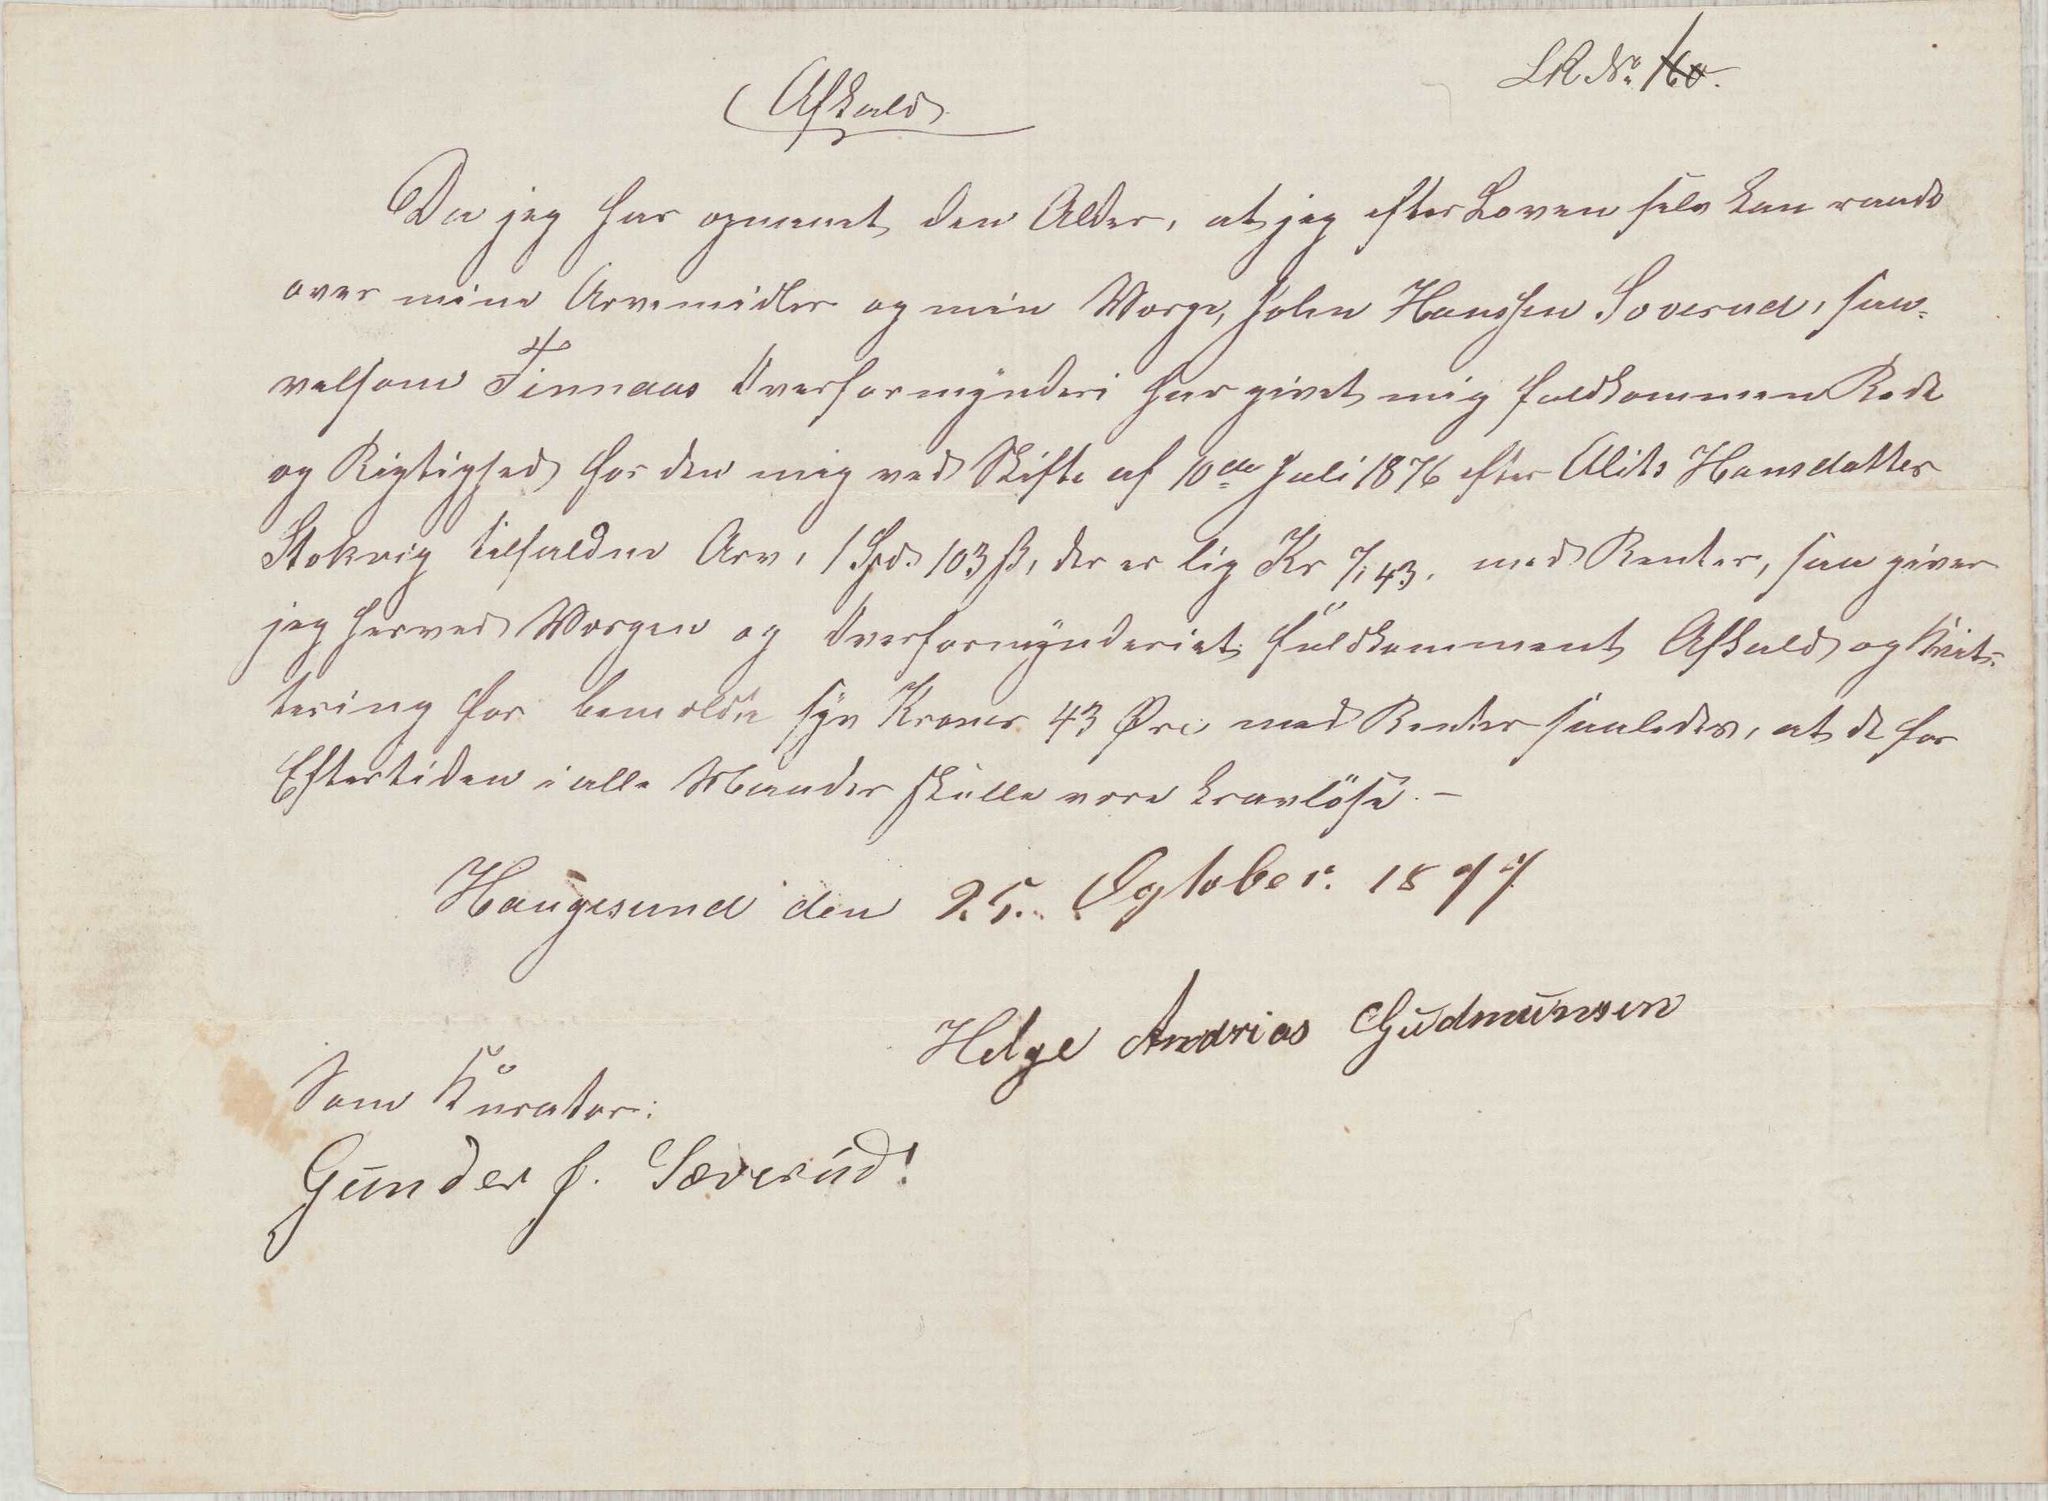 LR No. 160.
Afkald
Da jeg har opnaaet den Alder, at jeg efter Loven selv kan raade
over mine Arvemidler og min Værge, John Hanssen Soverud, saa-
velsom Finnaas Overformynderi har givet mig fuldkommen Rede
og Rigtighed for den mig ved Skifte af 10de Juli 1876 efter Alits Hansdatter
Stokvig tilfaldne Arv, 1 Spd. 103 ß, der er lig Kr 7,43. med Renter, saa giver
jeg herved Værgen og Overformynderiet fuldkomment Afkald og Kvit-
tering for bemeldte syv Kroner 43 Øre med Renter saaledes, at de for
Eftertiden i alle Maader skulle være kravløse. —
Haugesund den 25. Ogtober. 1877
Helge Andrias Gudmunsen
Som Kurator:
Gunder J. Sæverud!